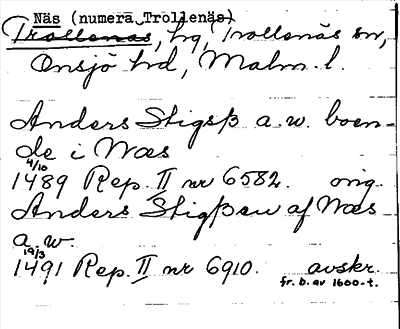 Näs (numera Trollenäs)
Trollenäs, hg, Trollenäs sn,
Onsjö hd, Malm. l.
Anders Stigsß a.w. boen-
de i Næs
4/10
1489 Rep. II nr 6582. orig.
Anders Stigßen af Næs
a.w.
19/3
1491 Rep. II nr 6910. avskr.
fr. b. av 1600-t.